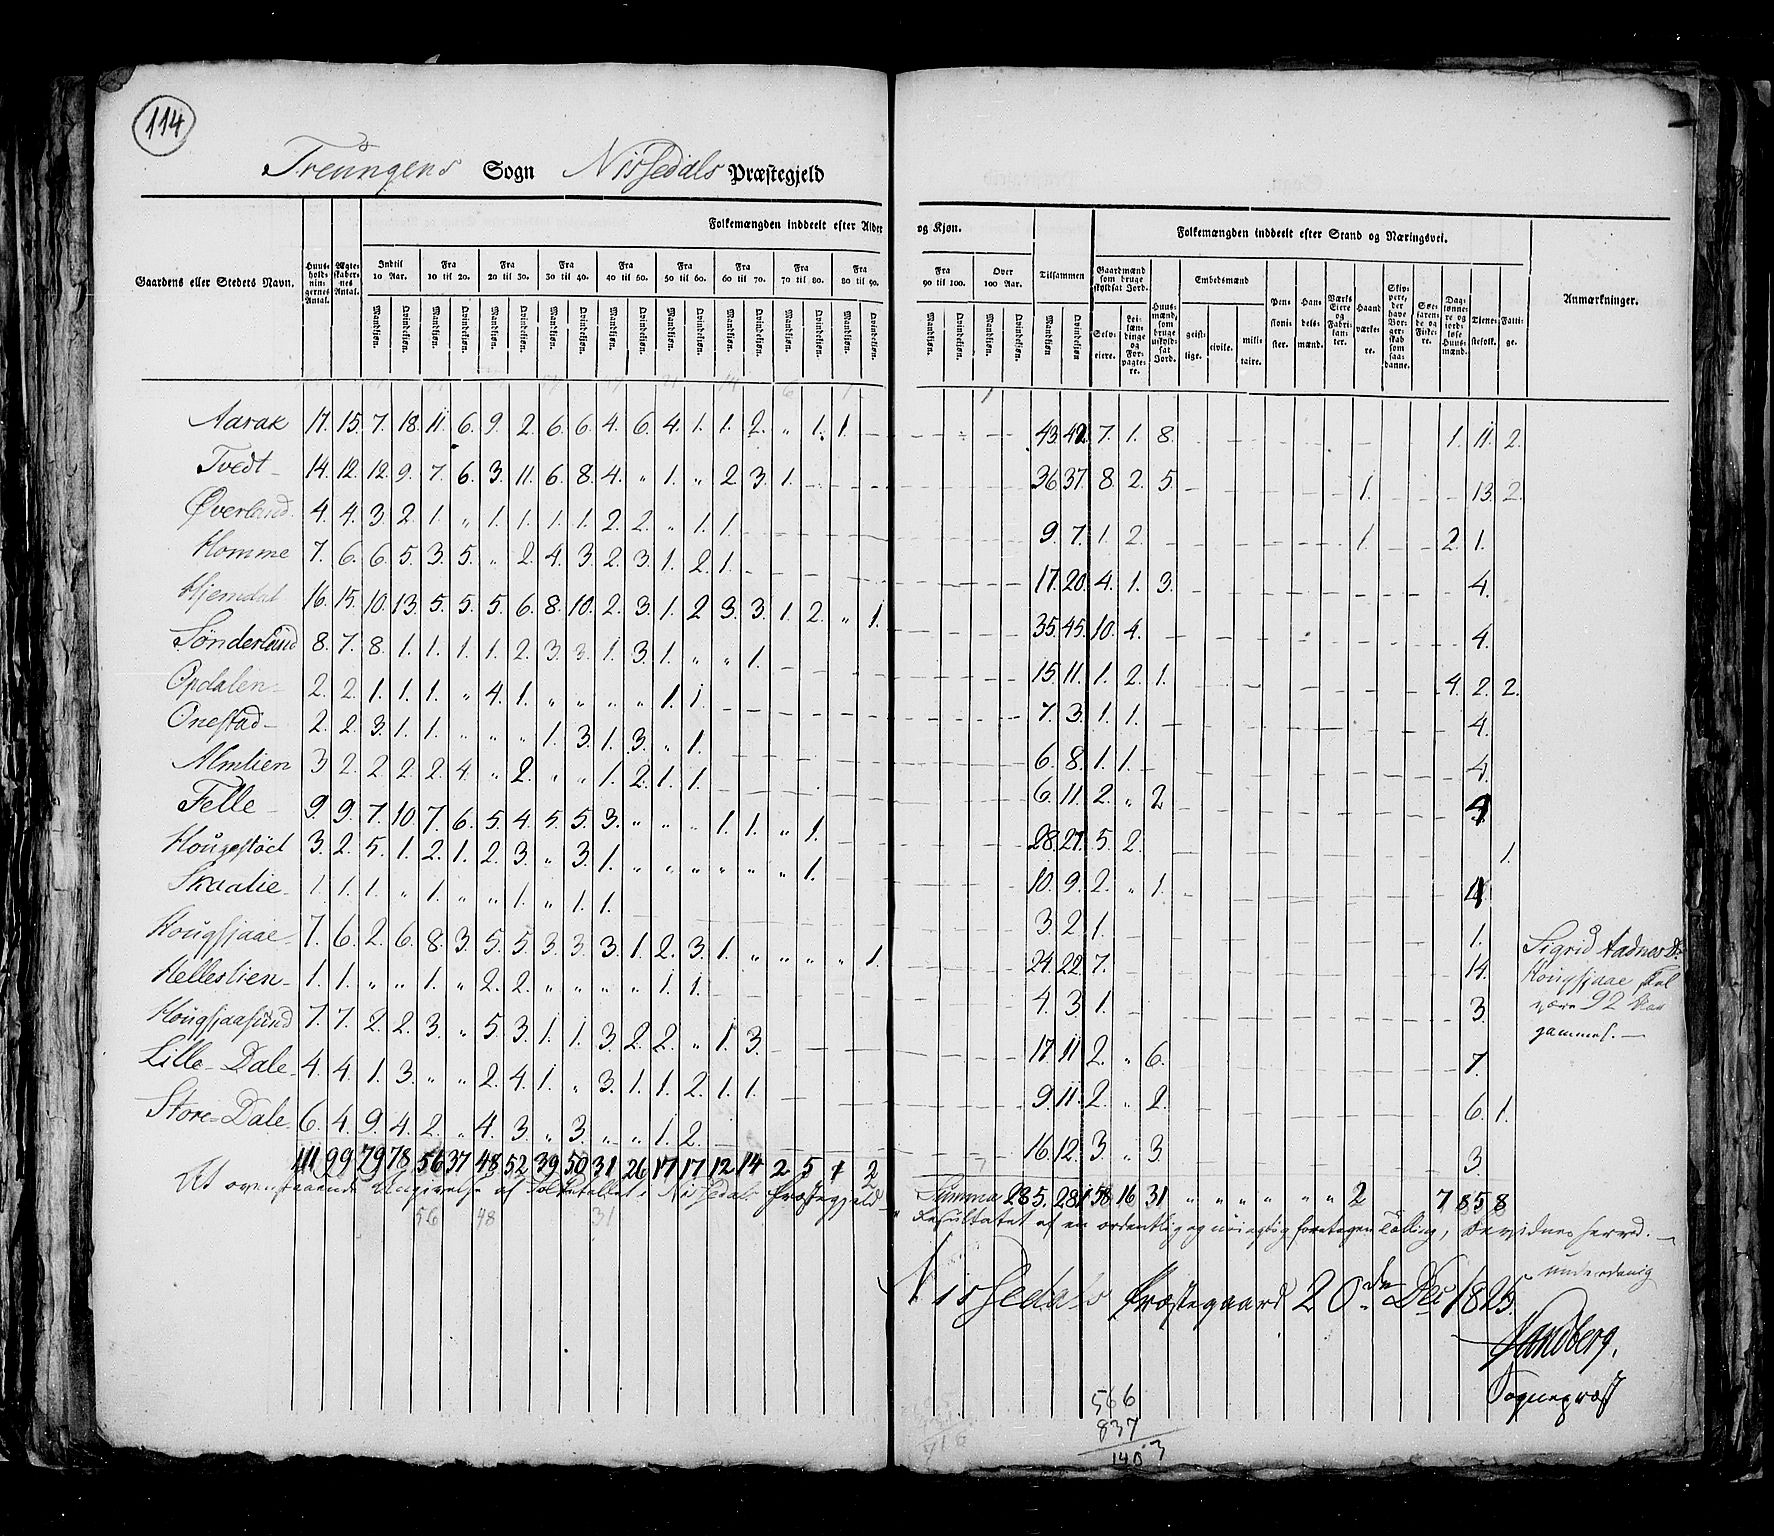 114
Treungens Sogn Nissedals Præstegjeld
Folkemængden inddeelt efter Alder og Kjøn. Folkemængden inddeelt efter Stand og Næringsvei.
Gaardens eller Stedets Navn. Huusholdningernes Antal. Ægteskabernes Antal. Indtil 10 Aar. Fra 10 til 20. Fra 20 til 30. Fra 30 til 40. Fra 40 til 50. Fra 50 til 60. Fra 60 til 70. Fra 70 til 80. Fra 80 til 90. Fra 90 til 100. Over 100 Aar. Tilsammen Gaardmænd som bruge skyldsat Jord. Huusmænd, som bruge uskyldsat Jord. Embedsmænd Pensionister. Handelsmænd. Værks Eiere og Fabrikanter. Haandværkere. Skippere, der have Borgerskab som saadanne. Søefarende og Fiskere. Daglønnere og jordløse Huusmænd. Tjenestefolk. Fattige. Anmærkninger.
Mandkiøn. Qvindekiøn. Mandkiøn. Qvindekiøn. Mandkiøn. Qvindekiøn. Mandkiøn. Qvindekiøn. Mandkiøn. Qvindekiøn. Mandkiøn. Qvindekiøn. Mandkiøn. Qvindekiøn. Mandkiøn. Qvindekiøn. Mandkiøn. Qvindekiøn. Mandkiøn. Qvindekiøn. Mandkiøn. Qvindekiøn. Mandkiøn Qvindekiøn. Selveiere. Leilændinge og Forpagtere. geistlige. civile. militaire.
Aarak 17. 15. 7. 18. 11. 6. 9. 2. 6. 6. 4. 6. 4. 1. 1. 2. „ 1. 1. 43. 42. 7. 1. 8. 1. 11. 2.
Tvedt 14. 12. 12. 9. 7. 6. 3. 11. 6. 8. 4. „ 1. „ 2. 3. 1. 36. 37. 8. 2. 5. 1. 13. 2.
Øverland 4. 4. 3. 2. 1. „ 1. 1. 1. 1. 2. 2. „ 1. 1. 9. 7. 1. 2. 1. 2. 1.
Homme 7. 6. 6. 5. 3. 5. „ 2. 4. 3. 2. 3. 1. 2. 1. 17. 20. 4. 1. 3. 4.
Hjemdal 16. 15. 10. 13. 5. 5. 5. 6. 8. 10. 2. 3. 1. 2 3. 3. 1. 2. „ 1. 35. 45. 10. 4. 4.
Sønderland 8. 7. 8. 1. 1. 1. 1. 2. 3. 3. 1. 3. 1. „ „ 1. 15. 11. 1. 2. 1. 4. 2. 2.
Opdalen 2. 2. 1. 1. 1. „ 4. 1. „ „ „ „ 1. 1. 7. 3. 1. 1. 4.
Onestad 2. 2. 3. 1. 1. „ „ „ 1. 3. 1. 3. „ 1. 6. 8. 1. 1. 4.
Almlien 3 2. 2 2. 2. 4. „ 2. „ „ 1. 2. 1. 1. 6. 11. 2. „ 2 4
Felle 9. 9. 7. 10. 7. 6. 5. 4. 5. 5. 3. „ „ „ 1. 1. „ 1. 28. 27. 5. 2. 1.
Hougestöel 3. 2. 5. 1. 2. 1. 2. 3. „ 3. 1. „ „ „ „ „ „ 1. 10. 9. 2. „ 1. 4
Skaalie 1. 1. 1. „ 1. „ „ 1. „ 1. 1. 3. 2. 1. 1.
Hougsjaae 7. 6. 2. 6. 8. 3. 5. 5. 3. 3. 3. 1. 2. 3. 1. „ „ „ „ 1. 24. 22. 7. 14.
Helleslien 1. 1. „ „ 1. „ 2. 2. „ „ „ „ 1. 1. 4. 3. 1. 3.
Hougsjaasund 7. 7. 2. 2. 3. „ 5. 3. 1. 1. 3. 2. 2. „ 1. 3. 17. 11. 2. „ 6. 7.
Lille Dale 4. 4. 1. 3. „ „ 2. 4. 1. „ 3. 1. 1. 2. 1. 1. 9. 11. 2. „ 2. 6. 1.
Store-Dale 6. 4. 9. 4. 2. „ 4. 3. „ 3. „ „ 1. 2. 16. 12. 3. „ 3. 3.
111 99 79 78. 56 37 48 52. 39 50 31 26 17 17 12 14 2 5 1 2 Summa 285. 281 58 16 31 „ „ „ „ „ „ 2 7 85 8
Sigrid Aadnesd:
Hougsjaae skal
være 92 Aar
gammel.
At ovenstaaende Angivelse af Folketallet i Nissedals Præstegjeld er
Resultatet af en ordentlig og nöiagtig foretagen Tælling, bevidnes herved.
56 48 31
Nissedals Præstegaard 20de Dec 1825.
underdanig
Sandberg.
Sognepræst
566
837
1403